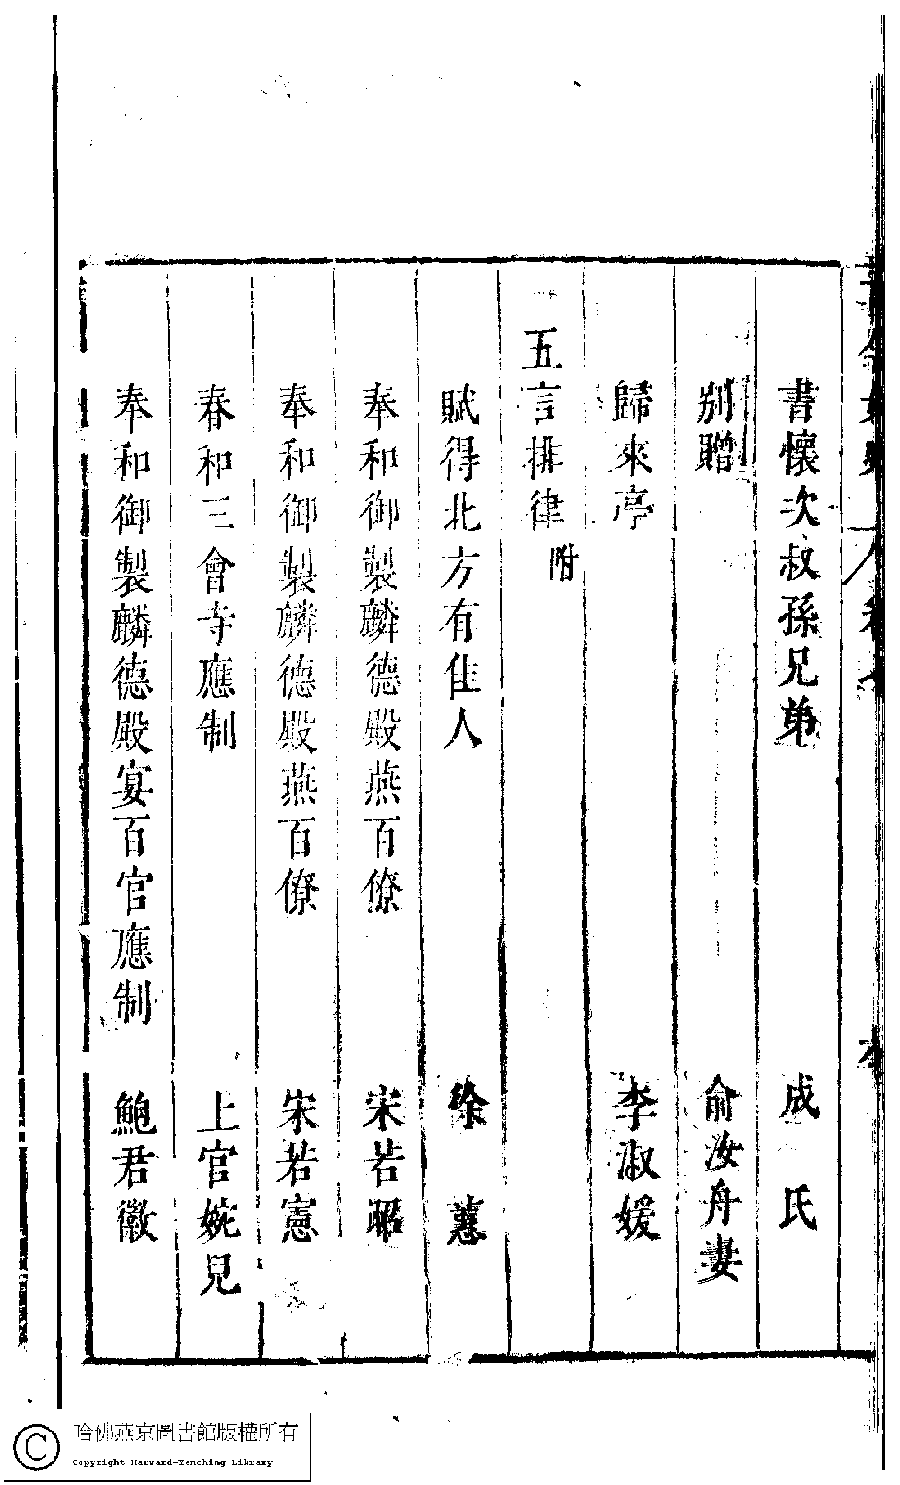 書懷次叔孫兄弟 成氏
別贈 俞汝舟妻
歸來亭 李淑媛
五言排律附
賦得北方有佳人 徐蕙
奉和御製麟德殿燕百僚 宋若昭
奉和御製麟德殿燕百僚 宋若憲
春和三會寺應制 上官婉兒
奉和御製麟德殿宴百官應制 鮑君徽
哈佛燕京圖書館版權所有
Copyright Harvard-Yenching Library